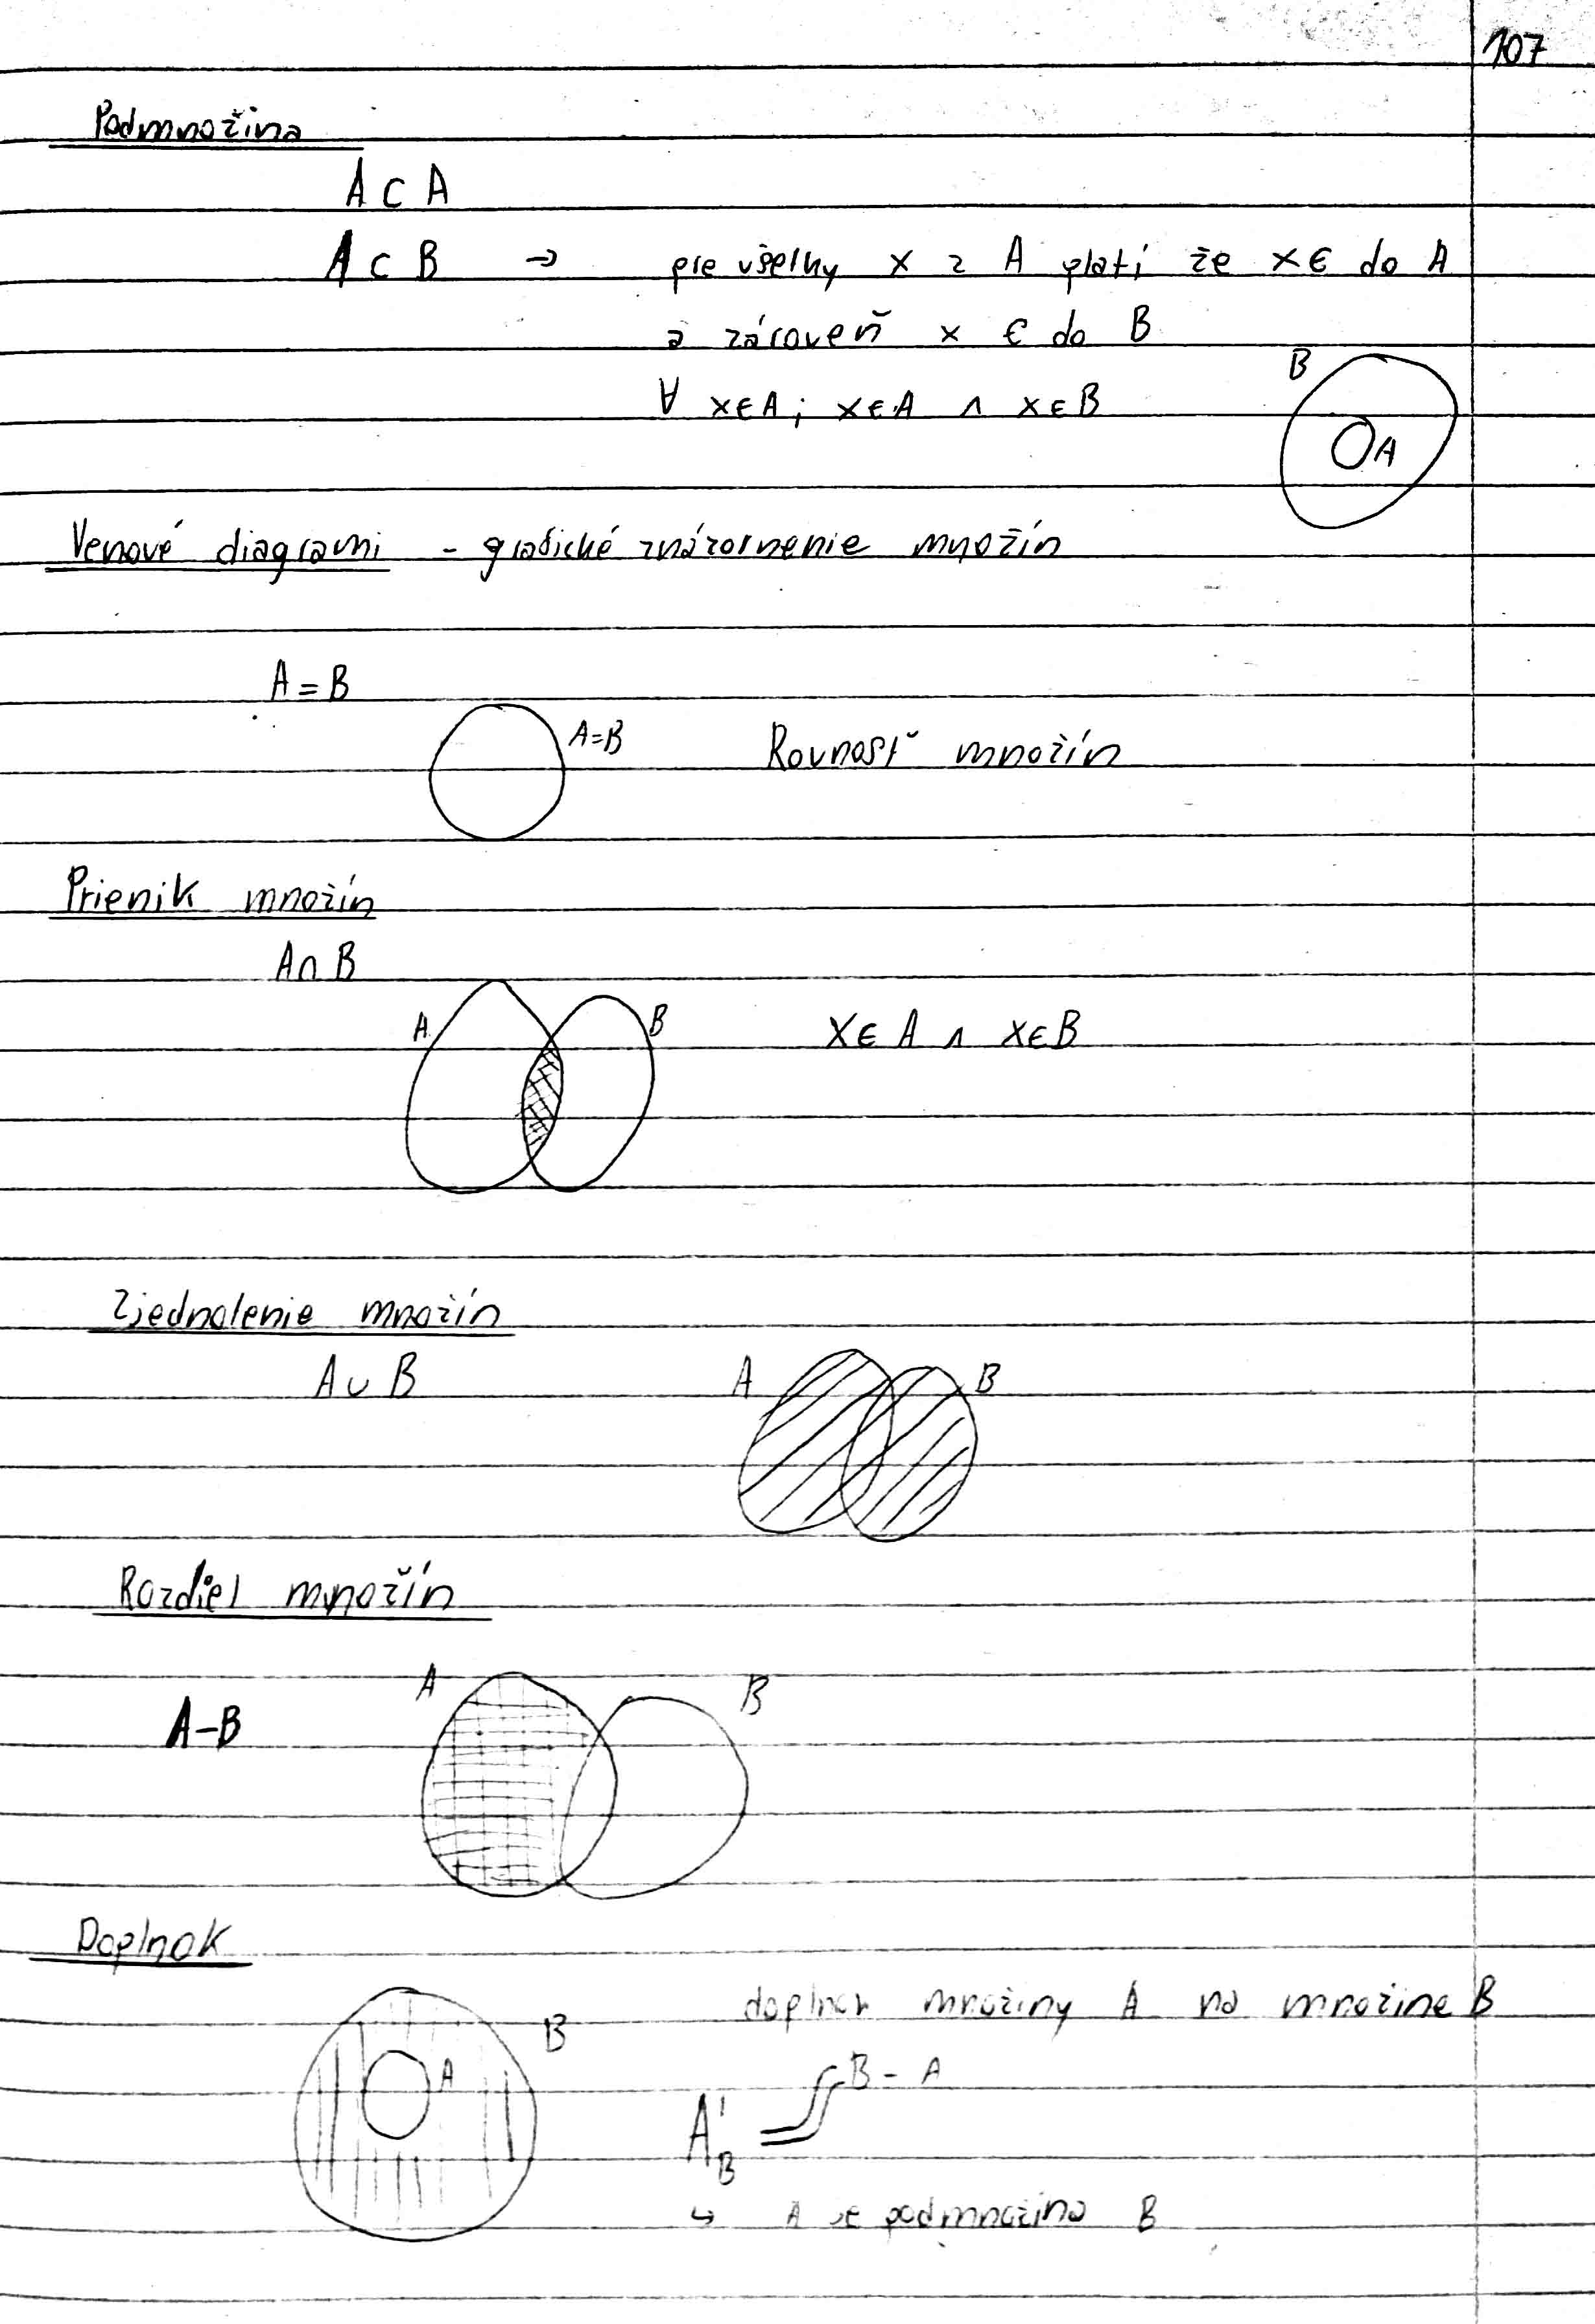 107
Podmnožina
A ⊂ A
A ⊂ B → pre všetky x z A platí že x ∈ do A
a zároveň x ∈ do B
∀ x∈A; x∈A ∧ x∈B
B
A
Venové diagrami - grafické znázornenie množín
A = B
A=B Rovnosť množín
Prienik množín
A∩B
A B x∈A ∧ x∈B
Zjednotenie množín
A∪B A B
Rozdiel množín
A B
A-B
Doplnok
doplnok množiny A na množine B
B
A B - A
A'B =
↳ A je podmnožina B